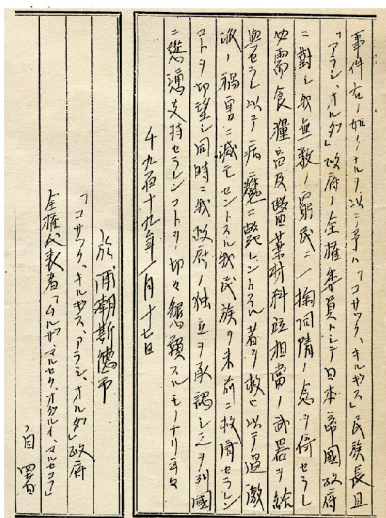 事件右ノ如ク ナルヲ以テ予ハ「コサック、キルギス」民族長且
「アラシ、オルダ」政府ノ全権委員トシテ日本帝國政府
ニ對シ我無数ノ窮民ニ一掬同情ノ念ヲ倚セラレ
必需食糧品及醫薬材料並相當ノ武器ヲ給
與セラレ以テ病 ニ斃レントスル者ヲ救ヒ以テ過激
派ノ禍害ニ滅亡セントスル我民族ヲ未前ニ救済セラレン
コトヲ切望シ同時ニ我政府ノ独立ヲ承認シ之ヲ列國
ニ慫慂支持セラレンコトヲ切々懇願スルモノナリ
千九百十九年一月十七日
於浦潮斯徳市
「コサック、キルギス、アラシ、オルダ」政府
全権代表者
自署